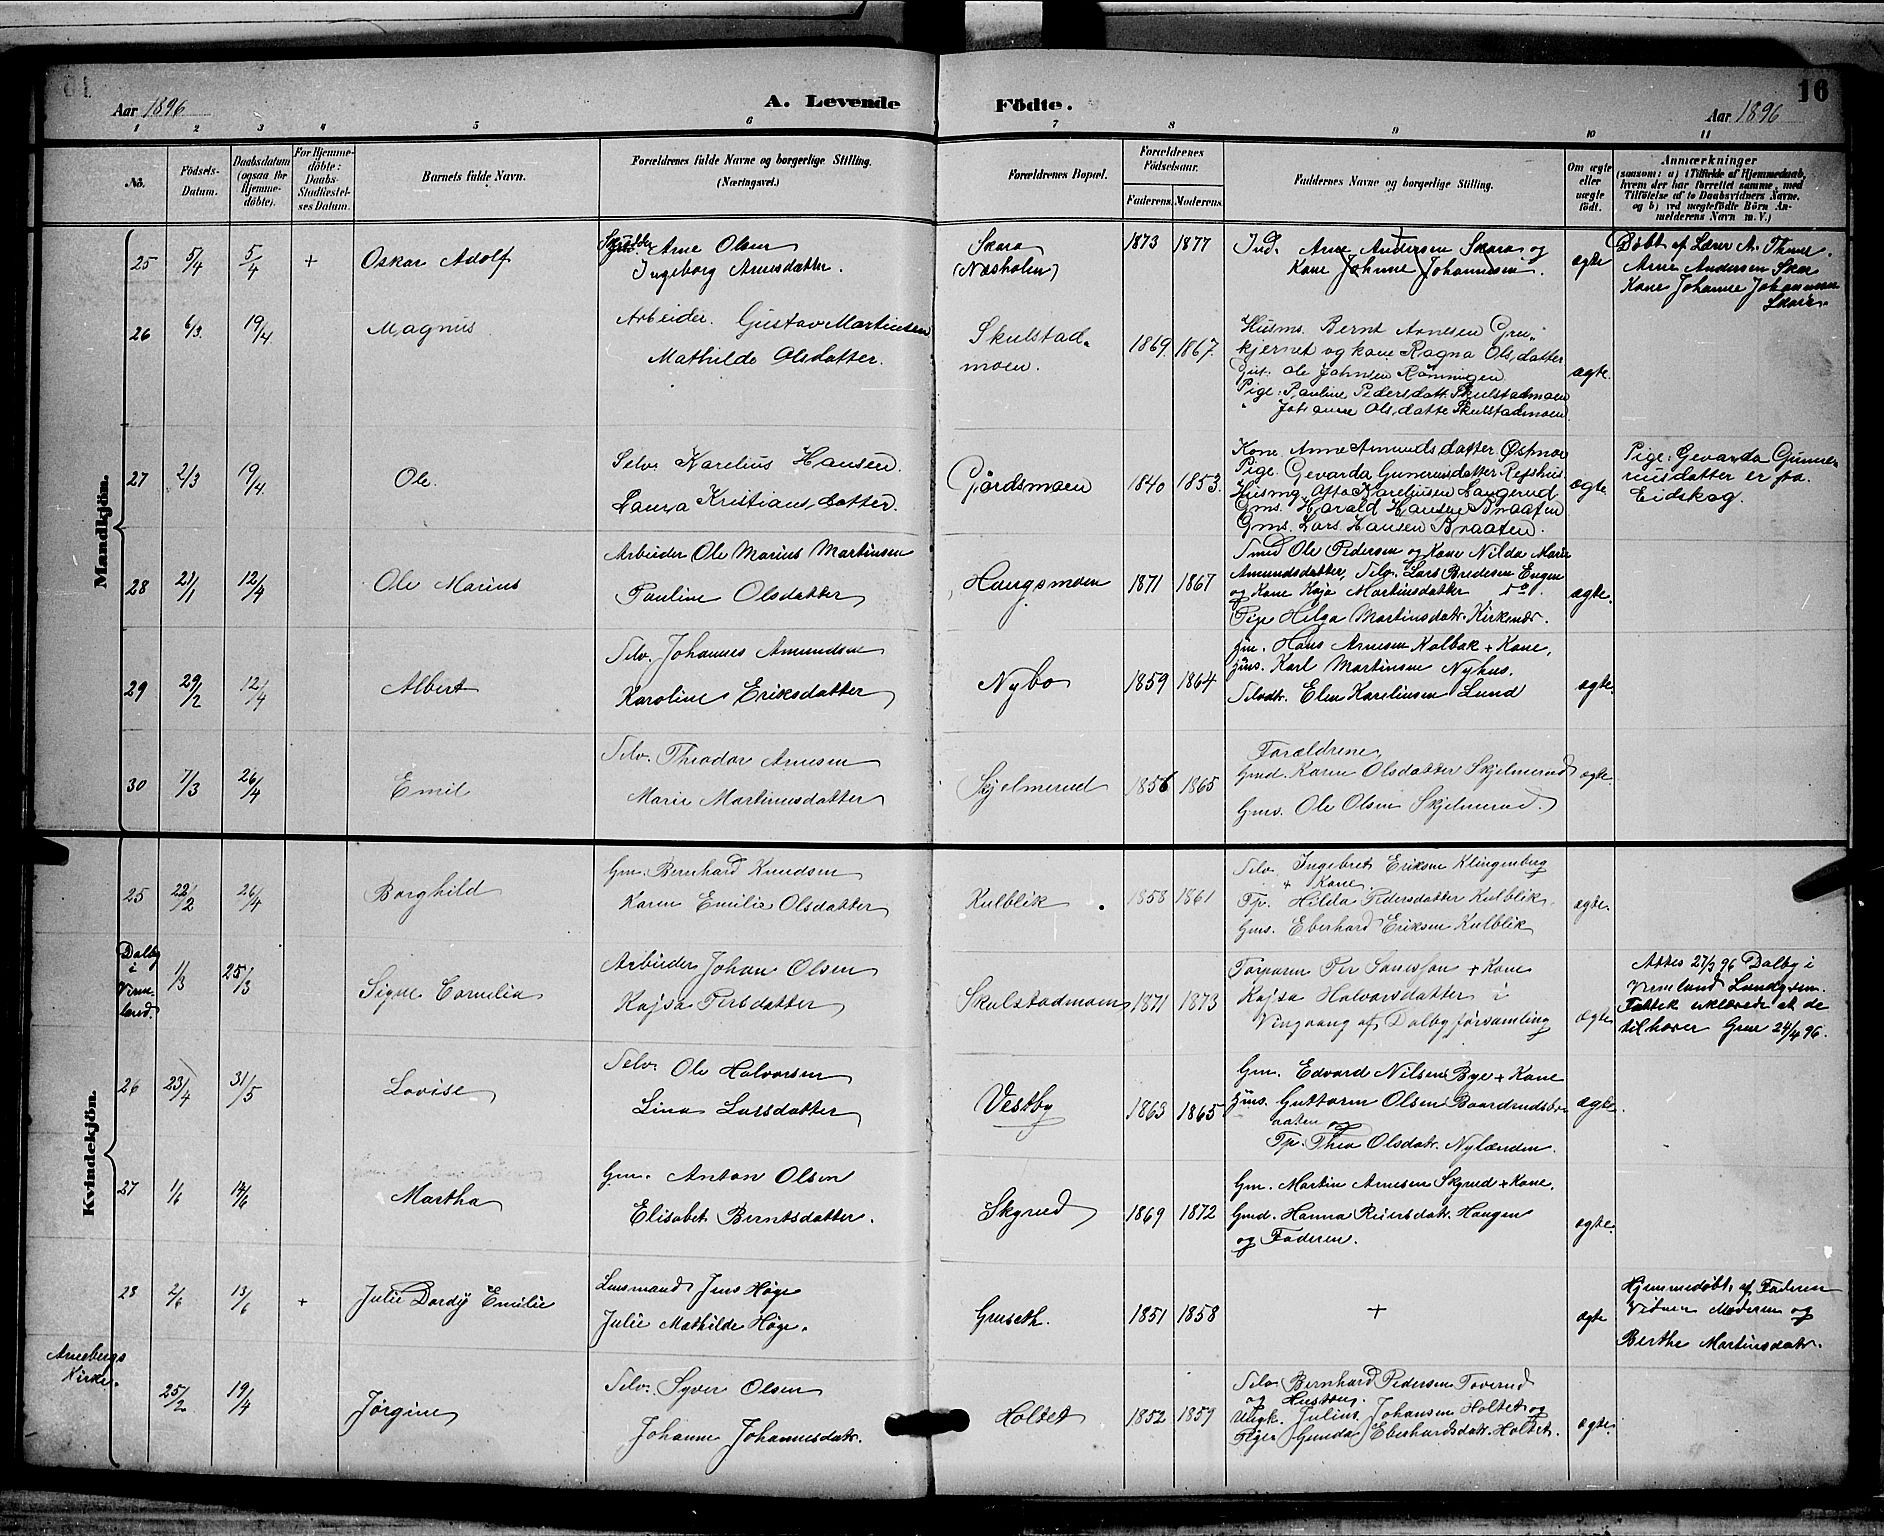 Aar 1896
A. Levende
Födte.
Aar 1896
16
1 2 3 4 5 6 7 8 9 10 11
No.
Födsels-
Datum.
Daabsdatum
(ogsaa for
Hjemme-
döbte).
For Hjemme-
döbte:
Daabs-
Stadfæstel-
ses Datum.
Barnets fulde Navn.
Forældrenes fulde Navne og borgerlige Stilling.
(Næringsvei.)
Forældrenes Bopæl.
Forældrenes
Födselsaar.
Faderens. Moderens.
Faddernes Navne og borgerlige Stilling.
Om ægte
eller
uægte
født.
Anmærkninger
(saasom: a) i Tilfælde af Hjemmedaab,
hvem der har forrettet samme, med
Tilföielse af to Daabsvidners Navne.
og b) ved uægtefödte Börn An-
melderens Navn m. V.)
Mandkjön.
25 5/4 5/4 + Oskar Adolf
Skrædder Arne Olsen
Ingeborg Arnesdatter.
Skara
(Næsholen)
1873 1877
Ind. Arne Andersen Skara og
Kone Johanne Johannesen.
ægte
Döbt af Lærer A. Thune.
Arne Andersen Skar
Kone Johanne Johannesen
Skara.
26 6/3 19/4 Magnus
Arbeider. Gustav Martinsen
Mathilde Olsdatter.
Skulstad-
moen.
1869 1867.
Husms. Bernt Arnesen Gru-
kjernet og kone Ragna Olsdatter
Gut. Ole Johnsen Rønningen
Pige: Pauline Pedersdatt. Skulstadmoen
" Johanne Olsdatte Skulstadmoen
ægte.
27 2/3 19/4 Ole.
Selv. Karelius Hansen.
Laura Kristiansdatter.
Gjördsmoen
1840 1853.
Kone Anne Amundsdatter Østmoe
Pige Gevarda Gunerusdatter
Husmd. Otto Karelinsen Langerud
Gms. Harald Hansen Braaten
Gms. Lars Hansen Braaten.
ægte
Pige: Gevarda Gunne-
riusdatter er fra
Eidskog.
28 21/1 12/4 Ole Marius
Arbeider Ole Marius Martinsen
Pauline Olsdatter
Haugsmoen
1871 1867
Smed Ole Pedersen og Kone Nilda Marie
Amundsdatter, Selv. Lars Bredesen Engen
og Kone Kaja Martinsdatter do.
Pige Helga Martinsdatr. Kirkenær.
ægte.
29 29/2 12/4 Albert
Selv. Johannes Amundsen
Karoline Eriksdatter
Nybo
1859 1864
Gm. Hans Arnesen Kalbak + Kone,
Gms. Karl Martinsen Nyhus,
Selvdtr. Elen Karelinsen Lund
ægte.
30 7/3 26/4 Emil
Selv. Theodor Arnesen
Marie Martinusdatter
Skjelmerud
1856 1865
Forældrene,
Gmd. Karen Olsdatter Skjelmerud
Gms. Ole Olsen Skjelmerud.
ægte
Kvindekjön.
25 22/2 26/4 Borghild
Gm. Bernhard Knudsen
Karen Emilie Olsdatter
Kulblik
1858 1861
Selv. Ingebret Eriksen Klingenberg
+ Kone.
Tp. Hilda Pedersdatter Kulblik.
Gms. Eberhard Eriksen Kulblik
ægte.
Dalby
i
Verm-
land.
1/3 25/3 Signe Cornelia
Arbeider Johan Olsen
Kajsa Persdatter
Skulstadmoen
1871 1873
Torparen Per Jonesson + Kone
Kajsa Halvorsdatter i
Vingvang af Dalby församling
ægte
Attes 27/3 96 Dalby i
Vermland
erklærede at de
tilhører Grue 24/4 96.
26 23/4 31/5 Lovise
Selv. Ole Halvorsen
Lina Larsdatter
Vestby
1863 1865
Gm. Edvard Nilsen Bye + Kone
Gms. Guttorm Olsen Baardrudsbr-
aaten og
Tp. Thea Olsdatr. Nylænden.
ægte.
27 1/6 14/6 Martha
Gm. Anton Olsen
Elisabet Berntsdatter.
Skyrud
1869 1872
Gm. Martin Arnesen Skyrud + Kone.
Gmd. Hanna Reiersdatr. Haugen
og Faderen.
ægte.
28 2/6 13/6 + Julie Dordij Emilie
Lensmand Jens Høye
Julie Mathilde Høye.
Grueseth.
1851 1858
+
ægte
Hjemmedöbt af Faderen
Vidner Moderen og
Berthe Martinsdatr.
Arnebergs
Kirke.
25/2 19/4 Jørgine
Selv. Syver Olsen
Johanne Johannesdatr.
Holtet
1852 1859
Selv. Bernhard Pedersen Toverud
og Hustru.
Ungk. Julius Johansen Holtet og
Pigen Gunda Eberhardsdatr. Holtet.
ægte.